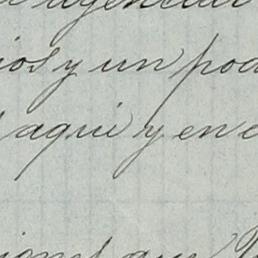 agenciar
ios y un pod
aqui y en e
iones que